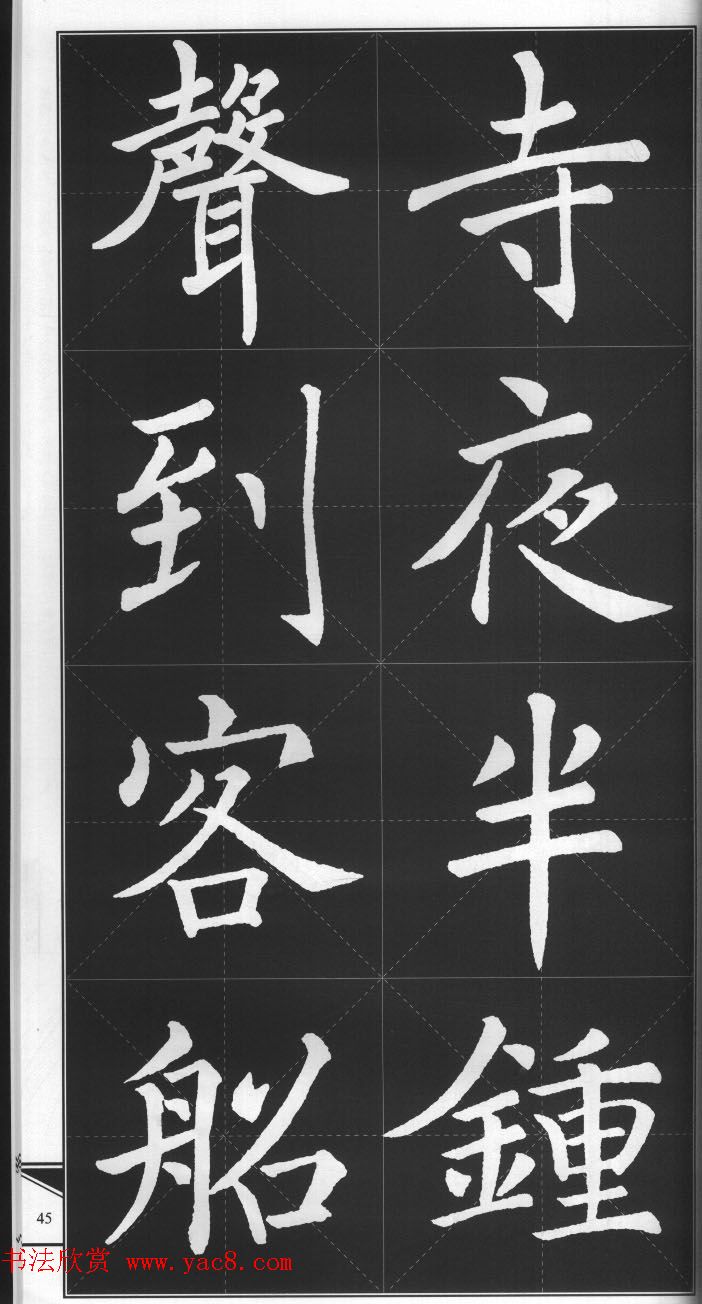 寺夜半鍾
聲到客船
45
书法欣赏 www.yac8.com